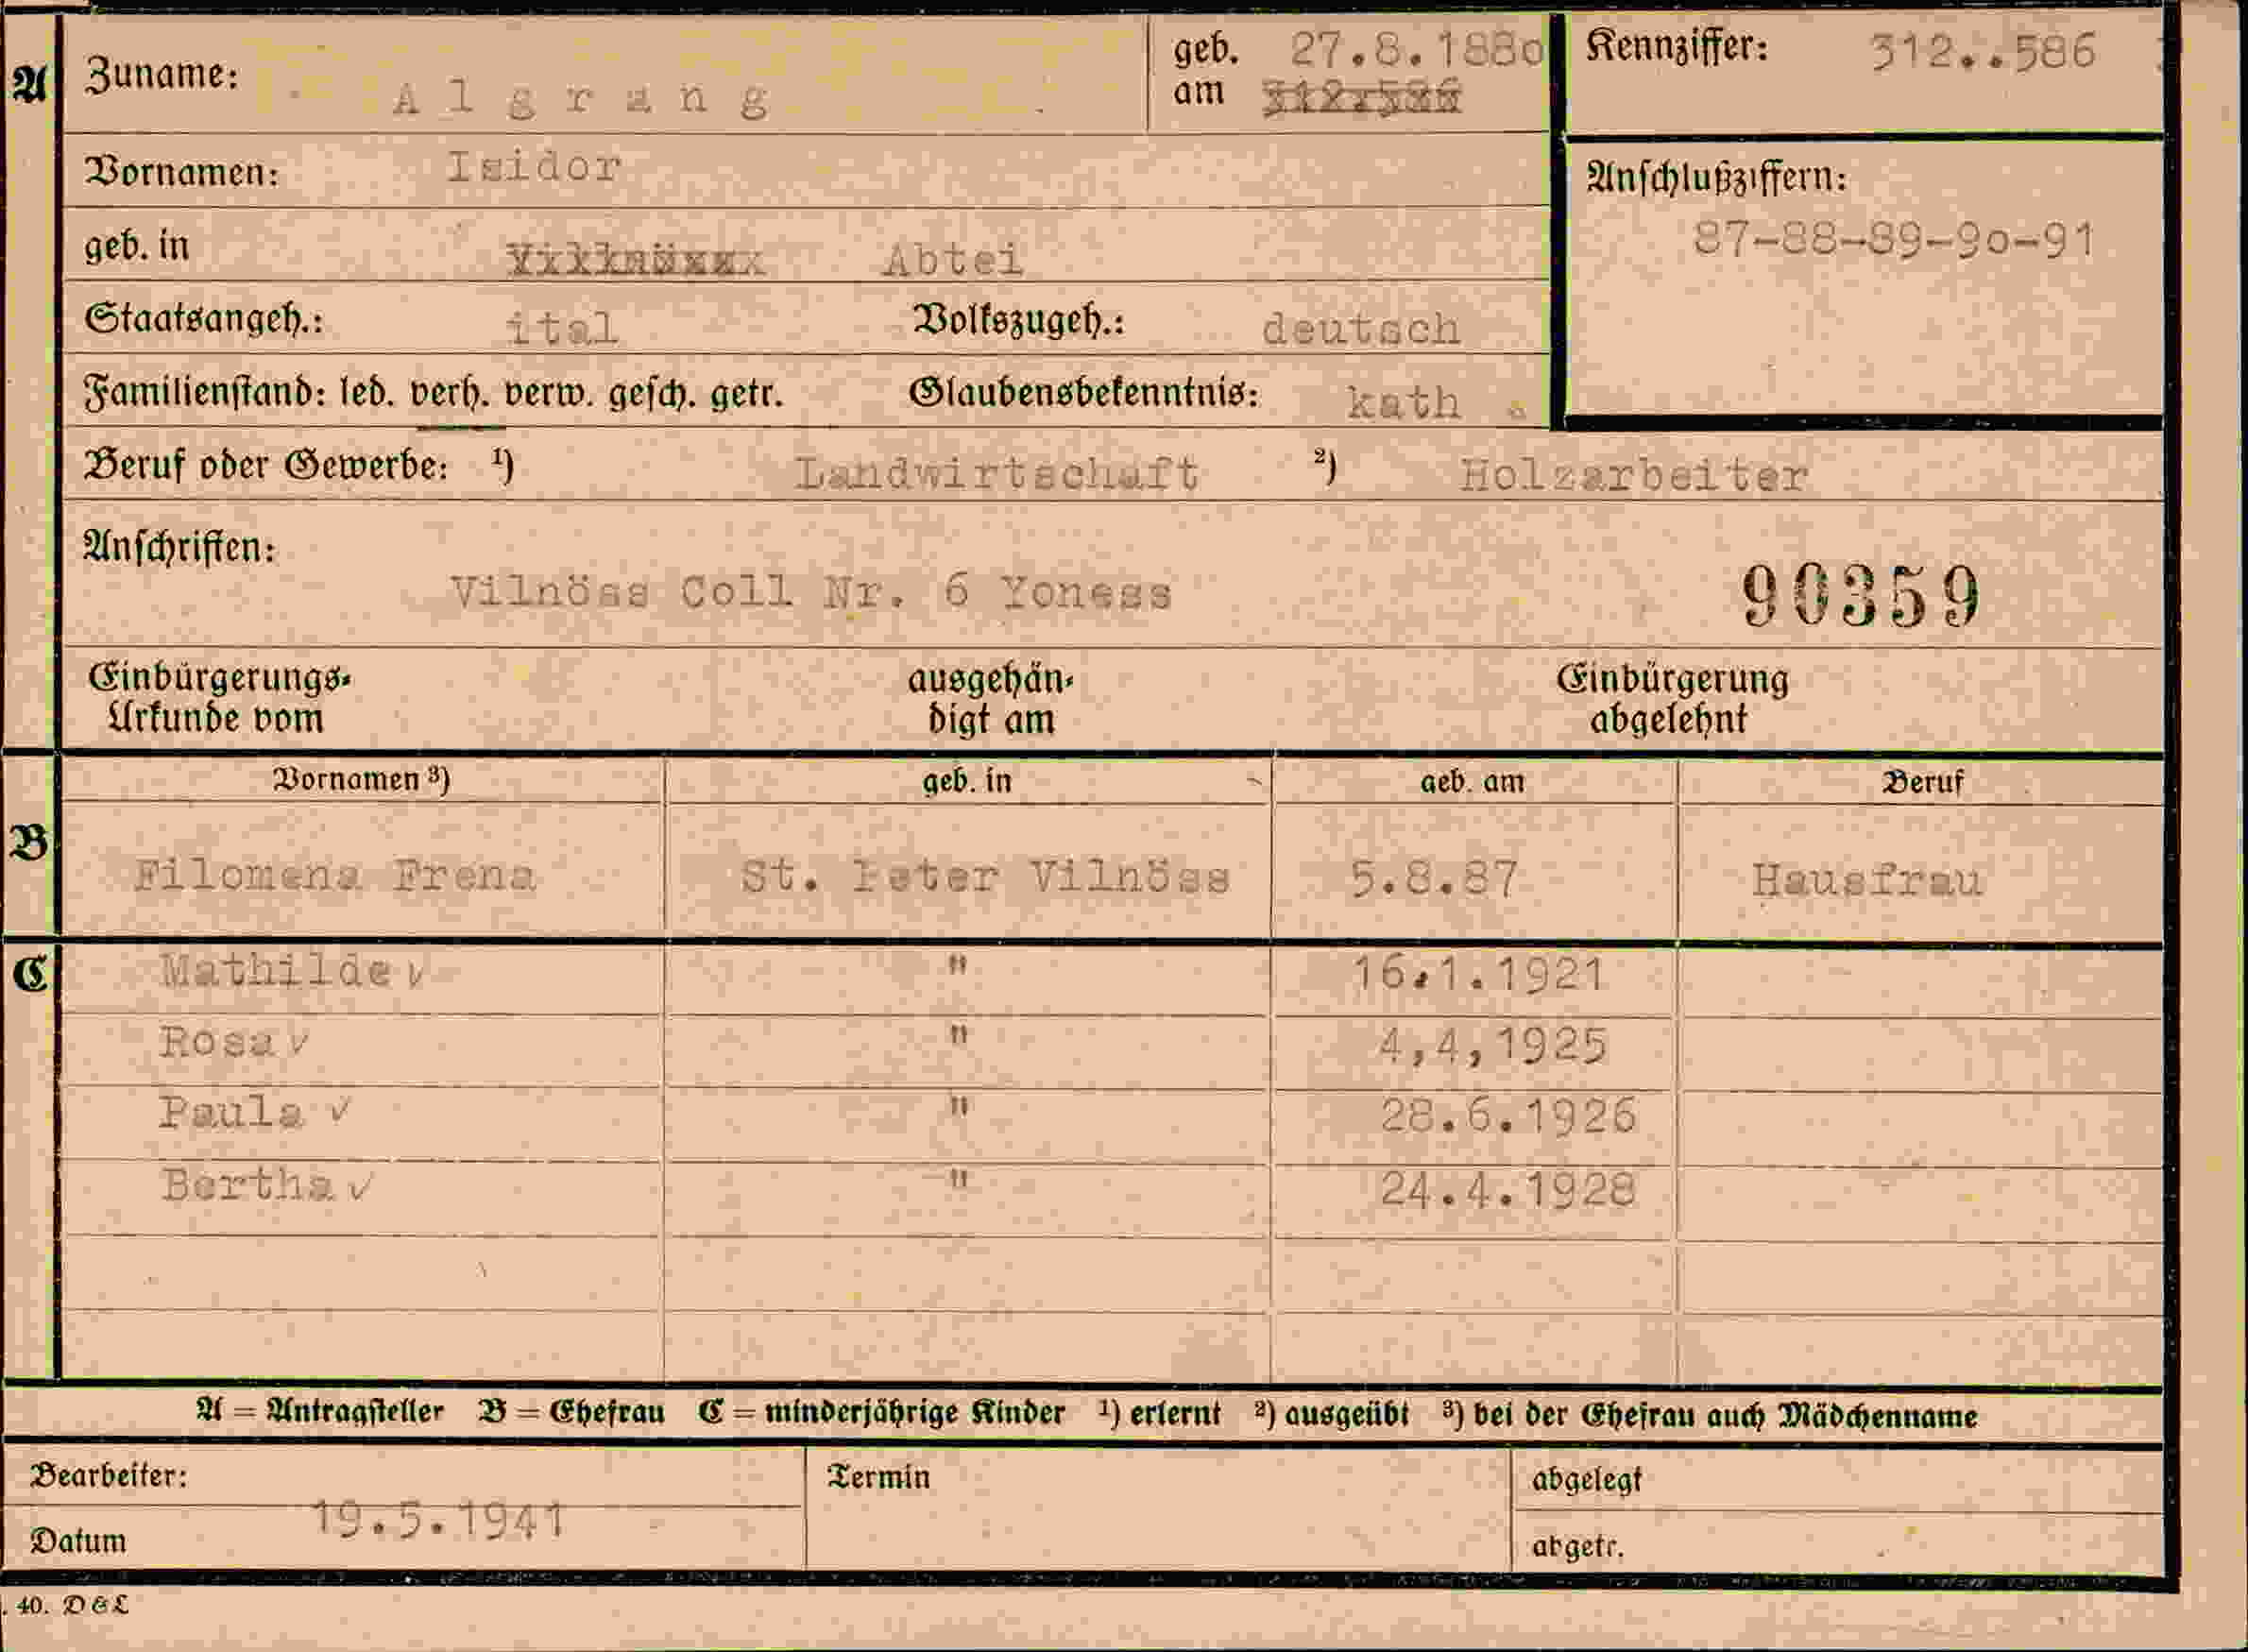 A Zuname: Algrang geb. am 27.8.1880 Kennziffer: 312..586
312.586
Vornamen: Isidor Anschlußziffern:
geb. in Abtei 87-88-89-90-91
Staatsangeh.: ital Volkszugeh.: deutsch
Familienstand: led. verh. verw. gesch. getr. Glaubensbekenntnis: kath
Beruf oder Gewerbe: ¹) Landwirtschaft ²) Holzarbeiter
Anschriften:
Vilnöss Coll Nr. 6 Yoness 90359
Einbürgerungs- ausgehän- Einbürgerung
Urkunde vom digt am abgelehnt
Vornamen ³) geb. in geb. am Beruf
B Filomena Frena St. Peter Vilnöss 5.8.87 Hausfrau
C Mathilde ✓ " 16.1.1921
Rosa ✓ " 4,4,1925
Paula ✓ " 28.6.1926
Bertha ✓ " 24.4.1928
A = Antragsteller B = Ehefrau C = minderjährige Kinder ¹) erlernt ²) ausgeübt ³) bei der Ehefrau auch Mädchenname
Bearbeiter: Termin abgelegt
19.5.1941
Datum abgetr.
. 40. D & L